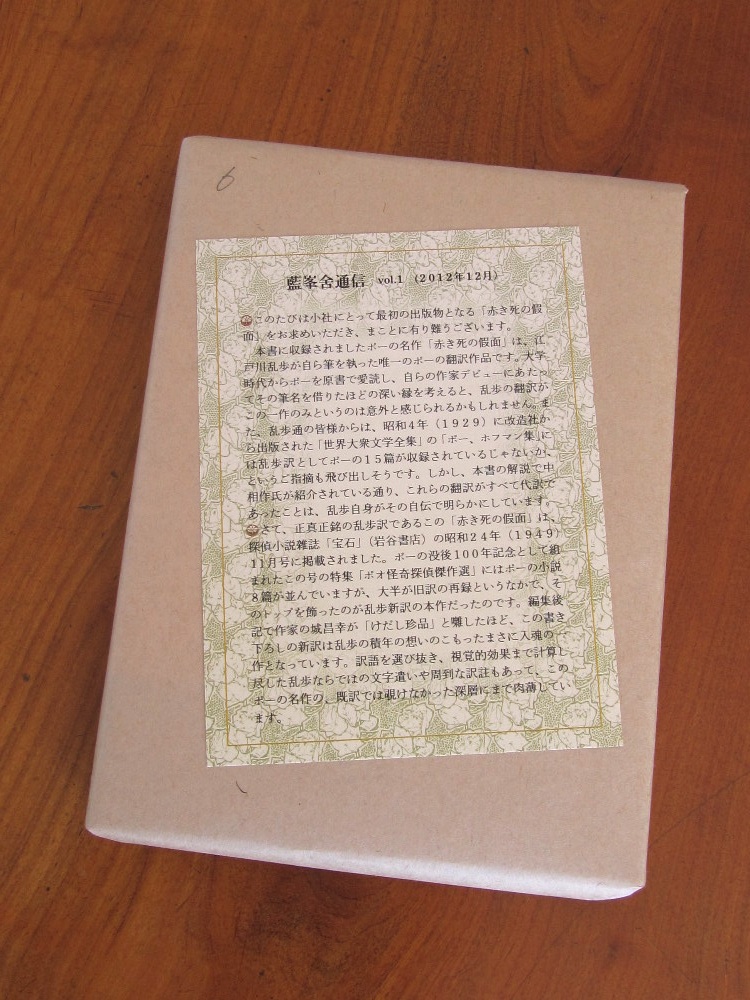 6
藍峯舎通信 vol.1 (2012年12月)
このたびは小社にとって最初の出版物となる「赤き死の假
面」をお求めいただき、まことに有り難うございます。
本書に収録されましたポーの名作「赤き死の假面」は、江
戸川乱歩が自ら筆を執った唯一のポーの翻訳作品です。大学
時代からポーを原書で愛読し、自らの作家デビューにあたっ
てその筆名を借りたほどの深い縁を考えると、乱歩の翻訳が
この一作のみというのは意外と感じられるかもしれません。ま
た、乱歩通の皆様からは、昭和4年(1929)に改造社か
ら出版された「世界大衆文学全集」の「ポー、ホフマン集」に
は乱歩訳としてポーの15篇が収録されているじゃないか、
というご指摘も飛び出しそうです。しかし、本書の解説で中
相作氏が紹介されている通り、これらの翻訳がすべて代訳で
あったことは、乱歩自身がその自伝で明らかにしています。
さて、正真正銘の乱歩訳であるこの「赤き死の假面」は、
探偵小説雑誌「宝石」(岩谷書店)の昭和24年(1949)
11月号に掲載されました。ポーの没後100年記念として組
まれたこの号の特集「ポオ怪奇探偵傑作選」にはポーの小説
8篇が並んでいますが、大半が旧訳の再録というなかで、そ
のトップを飾ったのが乱歩新訳の本作だったのです。編集後
記で作家の城昌幸が「けだし珍品」と囃したほど、この書き
下ろしの新訳は乱歩の積年の想いのこもったまさに入魂の一
作となっています。訳語を選び抜き、視覚的効果まで計算し
尽した乱歩ならではの文字遣いや周到な訳註もあって、この
ポーの名作の、既訳では覗けなかった深層にまで肉薄してい
ます。